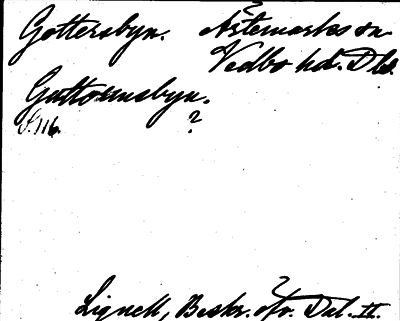 Gottersbyn. Ärtemarks sn
Vedbo hd. Dls.
Guttormsbyn.
S. 116. ?
Lignell, Beskr. öfv. Dal. II.